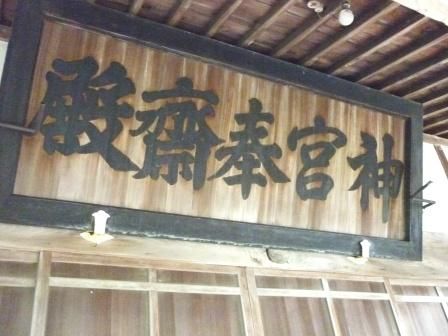 神宮奉齋殿